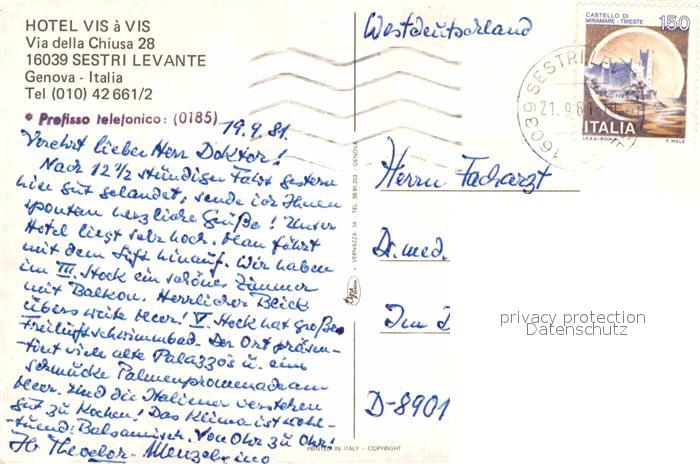 HOTEL VIS à VIS
Via della Chiusa 28
16039 SESTRI LEVANTE
Genova - Italia
Tel (010) 42 661/2
* Prefisso telefonico: (0185)
19.9.81.
Verehrt lieber Herr Doktor!
Nach 12 1/2 stündiger Fahrt gestern
hier gut gelandet, sende ich Ihnen
spontan herzliche Grüße! Unser
Hotel liegt sehr hoch. Man fährt
mit dem Lift hinauf. Wir haben
im III. Stock ein schönes Zimmer
mit Balkon. Herrlicher Blick
übers weite Meer! V. Stock hat großes
Freiluftschwimmbad. Der Ort präsen-
tiert viele alte Palazzo's u. eine
schmucke Palmenpromenade am
Meer. Und die Italiener verstehen
gut zu kochen! Das Klima ist wohl-
tuend: Balsamisch. Von Ohr zu Ohr!
Ihr Theodor
VERNAZZA, 34 - TEL. GENOVA
PRINTED IN ITALY - COPYRIGHT
Westdeutschland
CASTELLO DI
MIRAMARE - TRIESTE
150
ITALIA
I.P.Z.S.-ROMA
16039 SESTRI
21.9.81
Herrn Facharzt
Dr. med.
Im
D-8901
privacy protection
Datenschutz